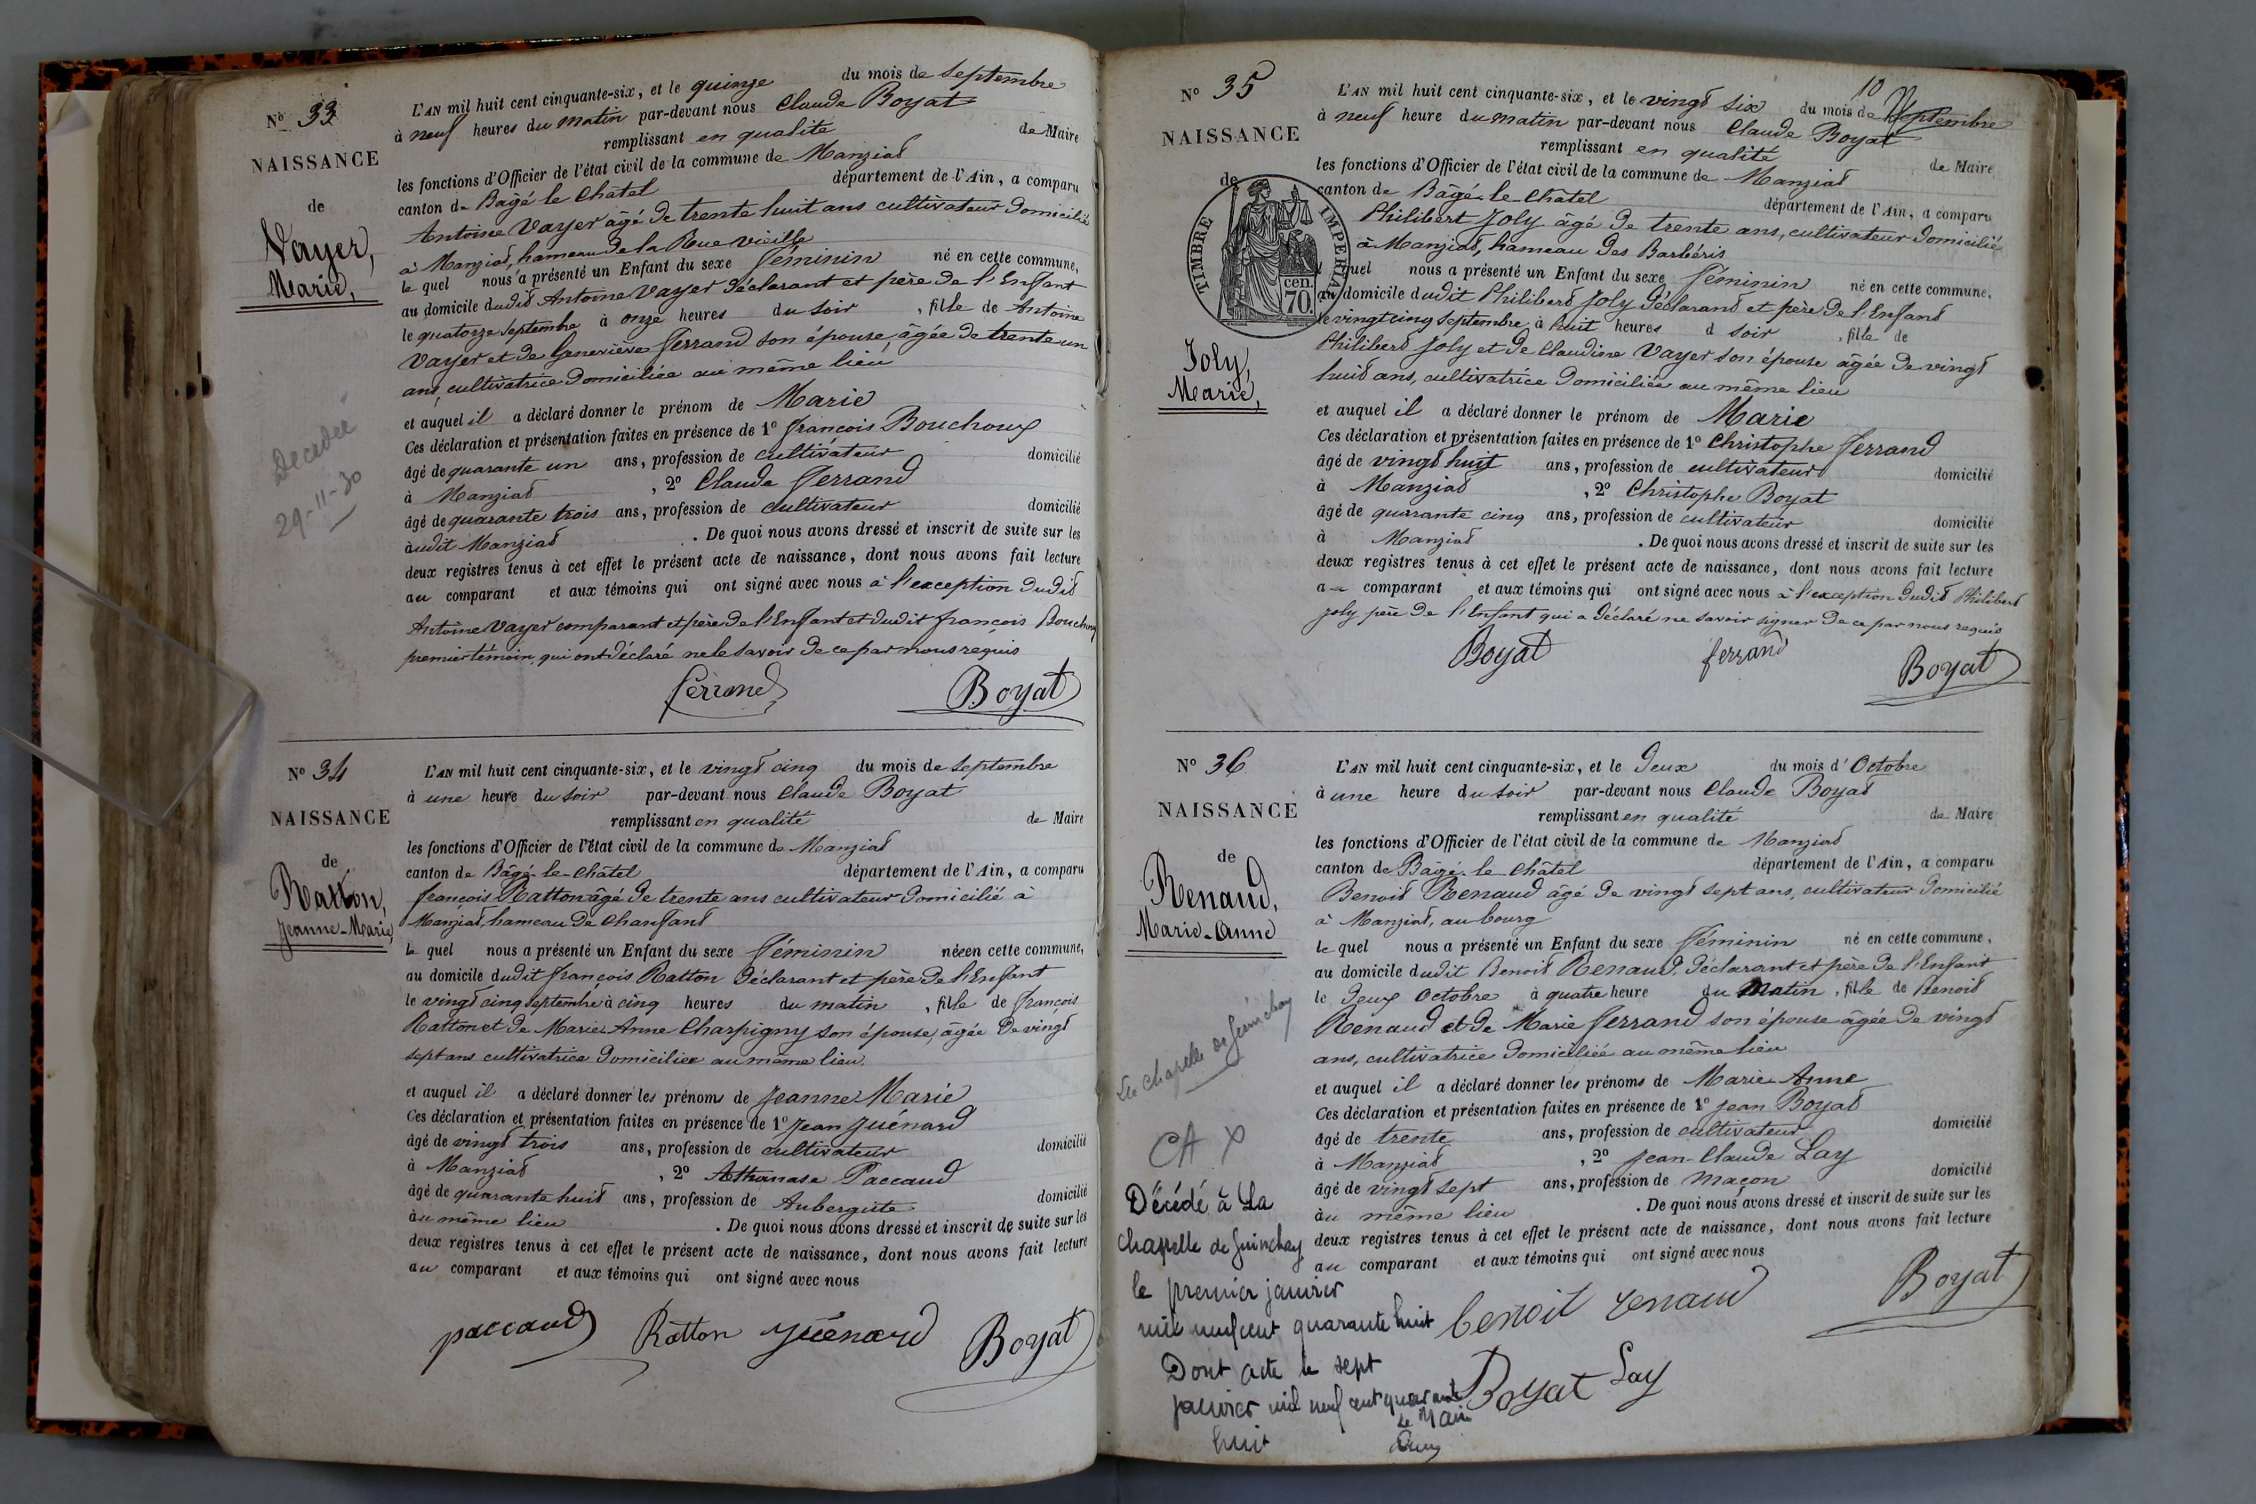 N° 33
NAISSANCE
de
Vayer,
Marie,
Decedée
29-11-30
L'AN mil huit cent cinquante-six, et le quinze du mois de septembre
à neuf heures du matin par-devant nous Claude Boyat
remplissant en qualité de Maire
les fonctions d'Officier de l'état civil de la commune de Manziat
canton de Bâgé le Châtel département de l'Ain, a comparu
Antoine Vayer âgé de trente huit ans cultivateur domicilié
à Manziat, hameau de la Rue Vieille
le quel nous a présenté un Enfant du sexe féminin né en cette commune,
au domicile dudit Antoine Vayer déclarant et père de l'Enfant
le quatorze septembre à onze heures du soir, fille de Antoine
Vayer et de Geneviève ferrand son épouse, âgée de trente un
ans, cultivatrice domiciliée au même lieu
et auquel il a déclaré donner le prénom de Marie
Ces déclaration et présentation faites en présence de 1° françois Bouchoux
âgé de quarante un ans, profession de cultivateur domicilié
à Manziat, 2° Claude ferrand
âgé de quarante trois ans, profession de cultivateur domicilié
àudit Manziat. De quoi nous avons dressé et inscrit de suite sur les
deux registres tenus à cet effet le présent acte de naissance, dont nous avons fait lecture
au comparant et aux témoins qui ont signé avec nous à l'exception dudit
Antoine Vayer comparant et père de l'Enfant et dudit françois Bouchoux
premier témoin, qui ont déclaré ne le savoir de ce par nous requis
ferrand Boyat
N° 34
NAISSANCE
de
Ratton,
Jeanne-Marie,
L'AN mil huit cent cinquante-six, et le vingt cinq du mois de septembre
à une heure du soir par-devant nous Claude Boyat
remplissant en qualité de Maire
les fonctions d'Officier de l'État civil de la commune de Manziat
canton de Bâgé-le-Châtel département de l'Ain, a comparu
françois Ratton âgé de trente ans cultivateur domicilié à
Manziat, hameau de Chanfant
le quel nous a présenté un Enfant du sexe féminin née en cette commune,
au domicile dudit françois Ratton déclarant et père de l'Enfant
le vingt cinq septembre à cinq heures du matin, fille de françois
Ratton et de Marie Anne Charpigny son épouse, âgée de vingt
sept ans cultivatrice domiciliée au même lieu.
et auquel il a déclaré donner les prénoms de Jeanne Marie
Ces déclaration et présentation faites en présence de 1° Jean Guénard
âgé de vingt trois ans, profession de cultivateur domicilié
à Manziat, 2° Athanase Paccaud
âgé de quarante huit ans, profession de Aubergiste domicilié
àu même lieu. De quoi nous avons dressé et inscrit de suite sur les
deux registres tenus à cet effet le présent acte de naissance, dont nous avons fait lecture
au comparant et aux témoins qui ont signé avec nous
paccaud Ratton guénard Boyat
10
N° 35
NAISSANCE
de
TIMBRE IMPERIAL
70. cen.
Joly,
Marie,
L'AN mil huit cent cinquante-six, et le vingt six du mois de septembre
à neuf heure du matin par-devant nous Claude Boyat
remplissant en qualité de Maire
les fonctions d'Officier de l'état civil de la commune de Manziat
canton de Bâgé-le-Châtel département de l'Ain, a comparu
Philibert Joly âgé de trente ans, cultivateur domicilié
à Manziat, hameau des Barbéris
le quel nous a présenté un Enfant du sexe féminin né en cette commune,
au domicile dudit Philibert Joly déclarant et père de l'Enfant
le vingt cinq septembre à huit heures d soir, fille de
Philibert Joly et de Claudine Vayer son épouse âgée de vingt
huit ans, cultivatrice domiciliée au même lieu
et auquel il a déclaré donner le prénom de Marie
Ces déclaration et présentation faites en présence de 1° Christophe ferrand
âgé de vingt huit ans, profession de cultivateur domicilié
à Manziat, 2° Christophe Boyat
âgé de quarante cinq ans, profession de cultivateur domicilié
à Manziat. De quoi nous avons dressé et inscrit de suite sur les
deux registres tenus à cet effet le présent acte de naissance, dont nous avons fait lecture
au comparant et aux témoins qui ont signé avec nous à l'exception dudit Philibert
Joly père de l'Enfant qui a déclaré ne savoir signer de ce par nous requis
Boyat ferrand Boyat
N° 36
NAISSANCE
de
Renaud,
Marie-Anne
La Chapelle de Guinchay
CA X
Décédé à La
Chapelle de Guinchay
le premier janvier
mil neuf cent quarante huit
Dont acte le sept
janvier mil neuf cent quarante
huit
Le Maire
L'AN mil huit cent cinquante-six, et le deux du mois d'Octobre
à une heure du soir par-devant nous Claude Boyat
remplissant en qualité de Maire
les fonctions d'Officier de l'état civil de la commune de Manziat
canton de Bâgé-le-Châtel département de l'Ain, a comparu
Benoit Renaud âgé de vingt sept ans, cultivateur domicilié
à Manziat, au bourg
le quel nous a présenté un Enfant du sexe féminin né en cette commune,
au domicile dudit Benoit Renaud, déclarant et père de l'Enfant
le deux Octobre à quatre heure du Matin, fille de Benoit
Renaud et de Marie ferrand son épouse âgée de vingt
ans, cultivatrice domiciliée au même lieu
et auquel il a déclaré donner les prénoms de Marie Anne
Ces déclaration et présentation faites en présence de 1° Jean Boyat
âgé de trente ans, profession de cultivateur domicilié
à Manziat, 2° Jean-Claude Lay
âgé de vingt sept ans, profession de maçon domicilié
àu même lieu. De quoi nous avons dressé et inscrit de suite sur les
deux registres tenus à cet effet le présent acte de naissance, dont nous avons fait lecture
au comparant et aux témoins qui ont signé avec nous
benoit renaud Boyat
Boyat Lay